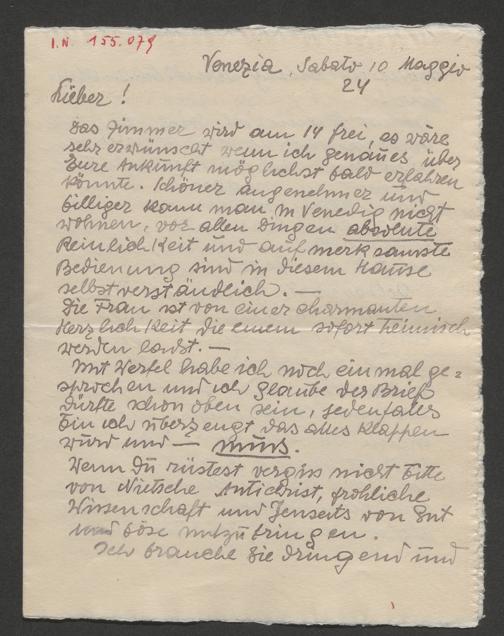 I.N. 155.079
Venezia, Sabato 10 Maggio
24
Lieber!
Das Zimmer wird am 14 frei, es wäre
sehr erwünscht wenn ich genaues über
Eure Ankunft möglichst bald erfahren
könnte. Schöner angenehmer und
billiger kann man in Venedig nicht
wohnen, vor allen dingen absolute
Reinlichkeit und aufmerksamste
Bedienung sind in diesem Hause
selbstverständlich. —
Die Frau ist von einer charmanten
Herzlichkeit die einem sofort heimisch
werden lässt. —
Mit Werfel habe ich noch einmal ge=
sprochen und ich glaube der Brief
dürfte schon oben sein, jedenfalls
bin ich überzeugt das alles klappen
wird und — muss.
Wenn Du rüstest vergiss nicht bitte
von Nietsche Antichrist, fröhliche
Wissenschaft und Jenseits von Gut
und böse mitzubringen.
Ich brauche sie dringend und